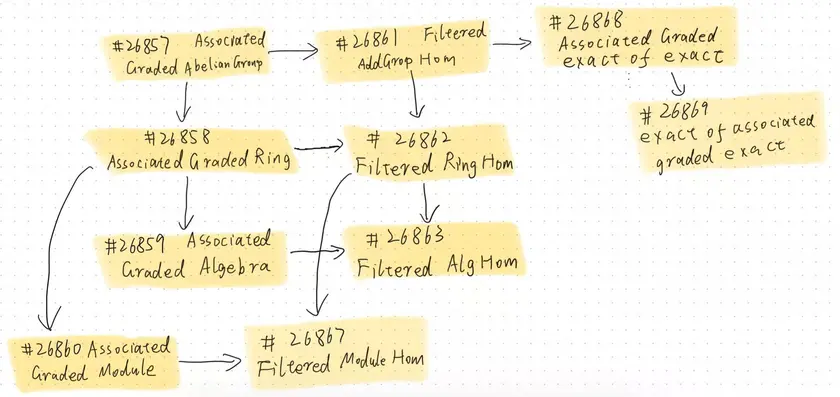 #26857 Associated
Graded AbelianGroup
#26861 Filtered
AddGrop Hom
#26868
Associated Graded
exact of exact
#26869
exact of associated
graded exact
#26858
Associated Graded Ring
# 26862
Filtered Ring Hom
#26859 Associated
Graded Algebra
# 26863
Filtered Alg Hom
#26860 Associated
Graded Module
# 26867
Filtered Module Hom